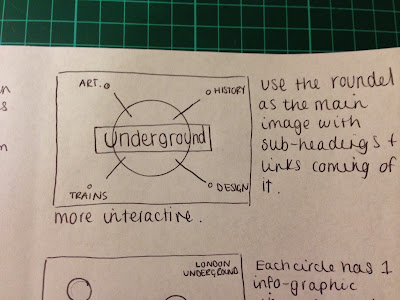 ART.
HISTORY
Underground
TRAINS
DESIGN
use the roundel
as the main
image with
sub-headings +
links coming of
it.
more interactive.
LONDON
UNDERGROUND
Each circle has 1
info-graphic